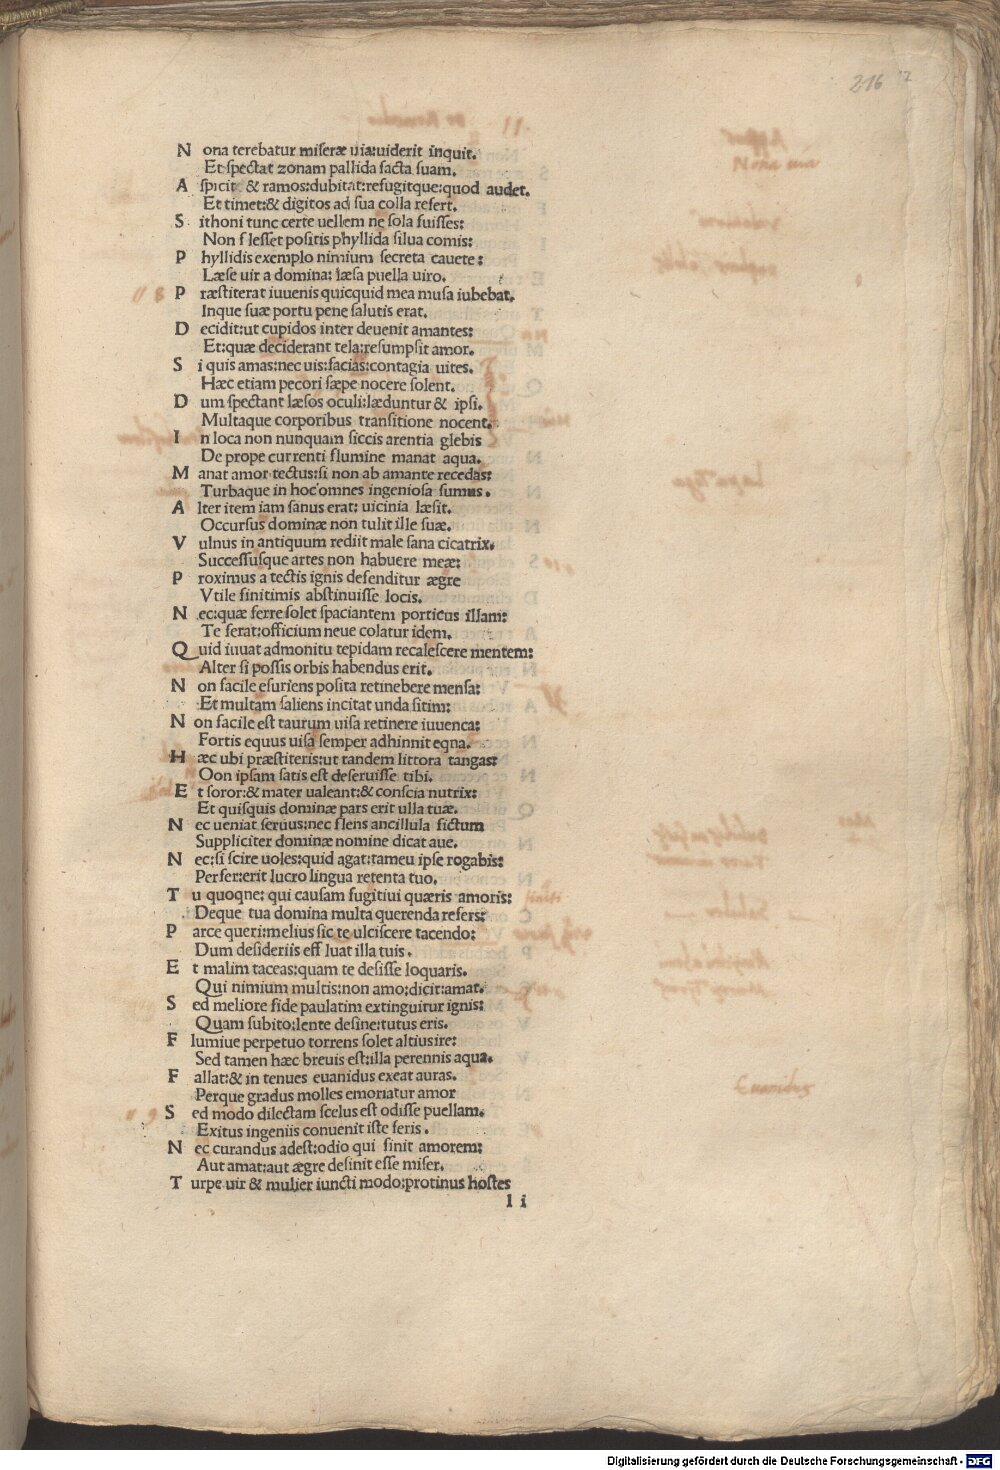 216
Nona uia
N ona terebatur miſeræ uia:uiderit inquit.
Et ſpectat zonam pallida facta ſuam.
A ſpicit & ramos:dubitat:refugitque:quod audet.
Et timet:& digitos ad ſua colla refert.
S ithoni tunc certe uellem ne ſola fuiſſes:
Non fleſſet poſitis phyllida ſilua comis:
P hyllidis exemplo nimium ſecreta cauete:
Læſe uir a domina: læſa puella uiro.
P ræſtiterat iuuenis quicquid mea muſa iubebat.
Inque ſuæ portu pene ſalutis erat.
D ecidit:ut cupidos inter deuenit amantes:
Et:quæ deciderant tela:reſumpſit amor.
S i quis amas:nec uis:facias:contagia uites.
Hæc etiam pecori ſæpe nocere ſolent.
D um ſpectant læſos oculi:læduntur & ipſi.
Multaque corporibus tranſitione nocent.
I n loca non nunquam ſiccis arentia glebis
De prope currenti flumine manat aqua.
M anat amor tectus:ſi non ab amante recedas:
Turbaque in hoc omnes ingenioſa ſumus.
A lter item iam ſanus erat: uicinia læſit.
Occurſus dominæ non tulit ille ſuæ.
V ulnus in antiquum rediit male ſana cicatrix.
Succeſſuſque artes non habuere meæ:
P roximus a tectis ignis defenditur ægre
Vtile finitimis abſtinuiſſe locis.
N ec:quæ ferre ſolet ſpaciantem porticus illam:
Te ferat:officium neue colatur idem.
Q uid iuuat admonitu tepidam recaleſcere mentem:
Alter ſi poſſis orbis habendus erit.
N on facile eſuriens poſita retinebere menſa:
Et multam ſaliens incitat unda ſitim:
N on facile eſt taurum uiſa retinere iuuenca:
Fortis equus uiſa ſemper adhinnit eqna.
H æc ubi præſtiteris:ut tandem littora tangas:
Oon ipſam ſatis eſt deſeruiſſe tibi.
E t ſoror:& mater ualeant:& conſcia nutrix:
Et quiſquis dominæ pars erit ulla tuæ.
N ec ueniat ſeruus:nec flens ancillula fictum
Suppliciter dominæ nomine dicat aue.
N ec:ſi ſcire uoles:quid agat:tameu ipſe rogabis:
Perfer:erit lucro lingua retenta tuo.
T u quoqne: qui cauſam fugitiui quæris amoris:
Deque tua domina multa querenda refers:
P arce queri:melius ſic te ulciſcere tacendo:
Dum deſideriis effluat illa tuis.
E t malim taceas:quam te deſiſſe loquaris.
Qui nimium multis:non amo:dicit:amat.
S ed meliore fide paulatim extinguitur ignis:
Quam ſubito:lente deſine:tutus eris.
F lumiue perpetuo torrens ſolet altius ire:
Sed tamen hæc breuis eſt:illa perennis aqua.
F allat:& in tenues euanidus exeat auras.
Euanidus
Perque gradus molles emoriatur amor
S ed modo dilectam ſcelus eſt odiſſe puellam.
Exitus ingeniis conuenit iſte feris.
N ec curandus adeſt:odio qui finit amorem:
Aut amat:aut ægre deſinit eſſe miſer.
T urpe uir & mulier iuncti modo:protinus hoſtes
l i
Digitalisierung gefördert durch die Deutsche Forschungsgemeinschaft - DFG